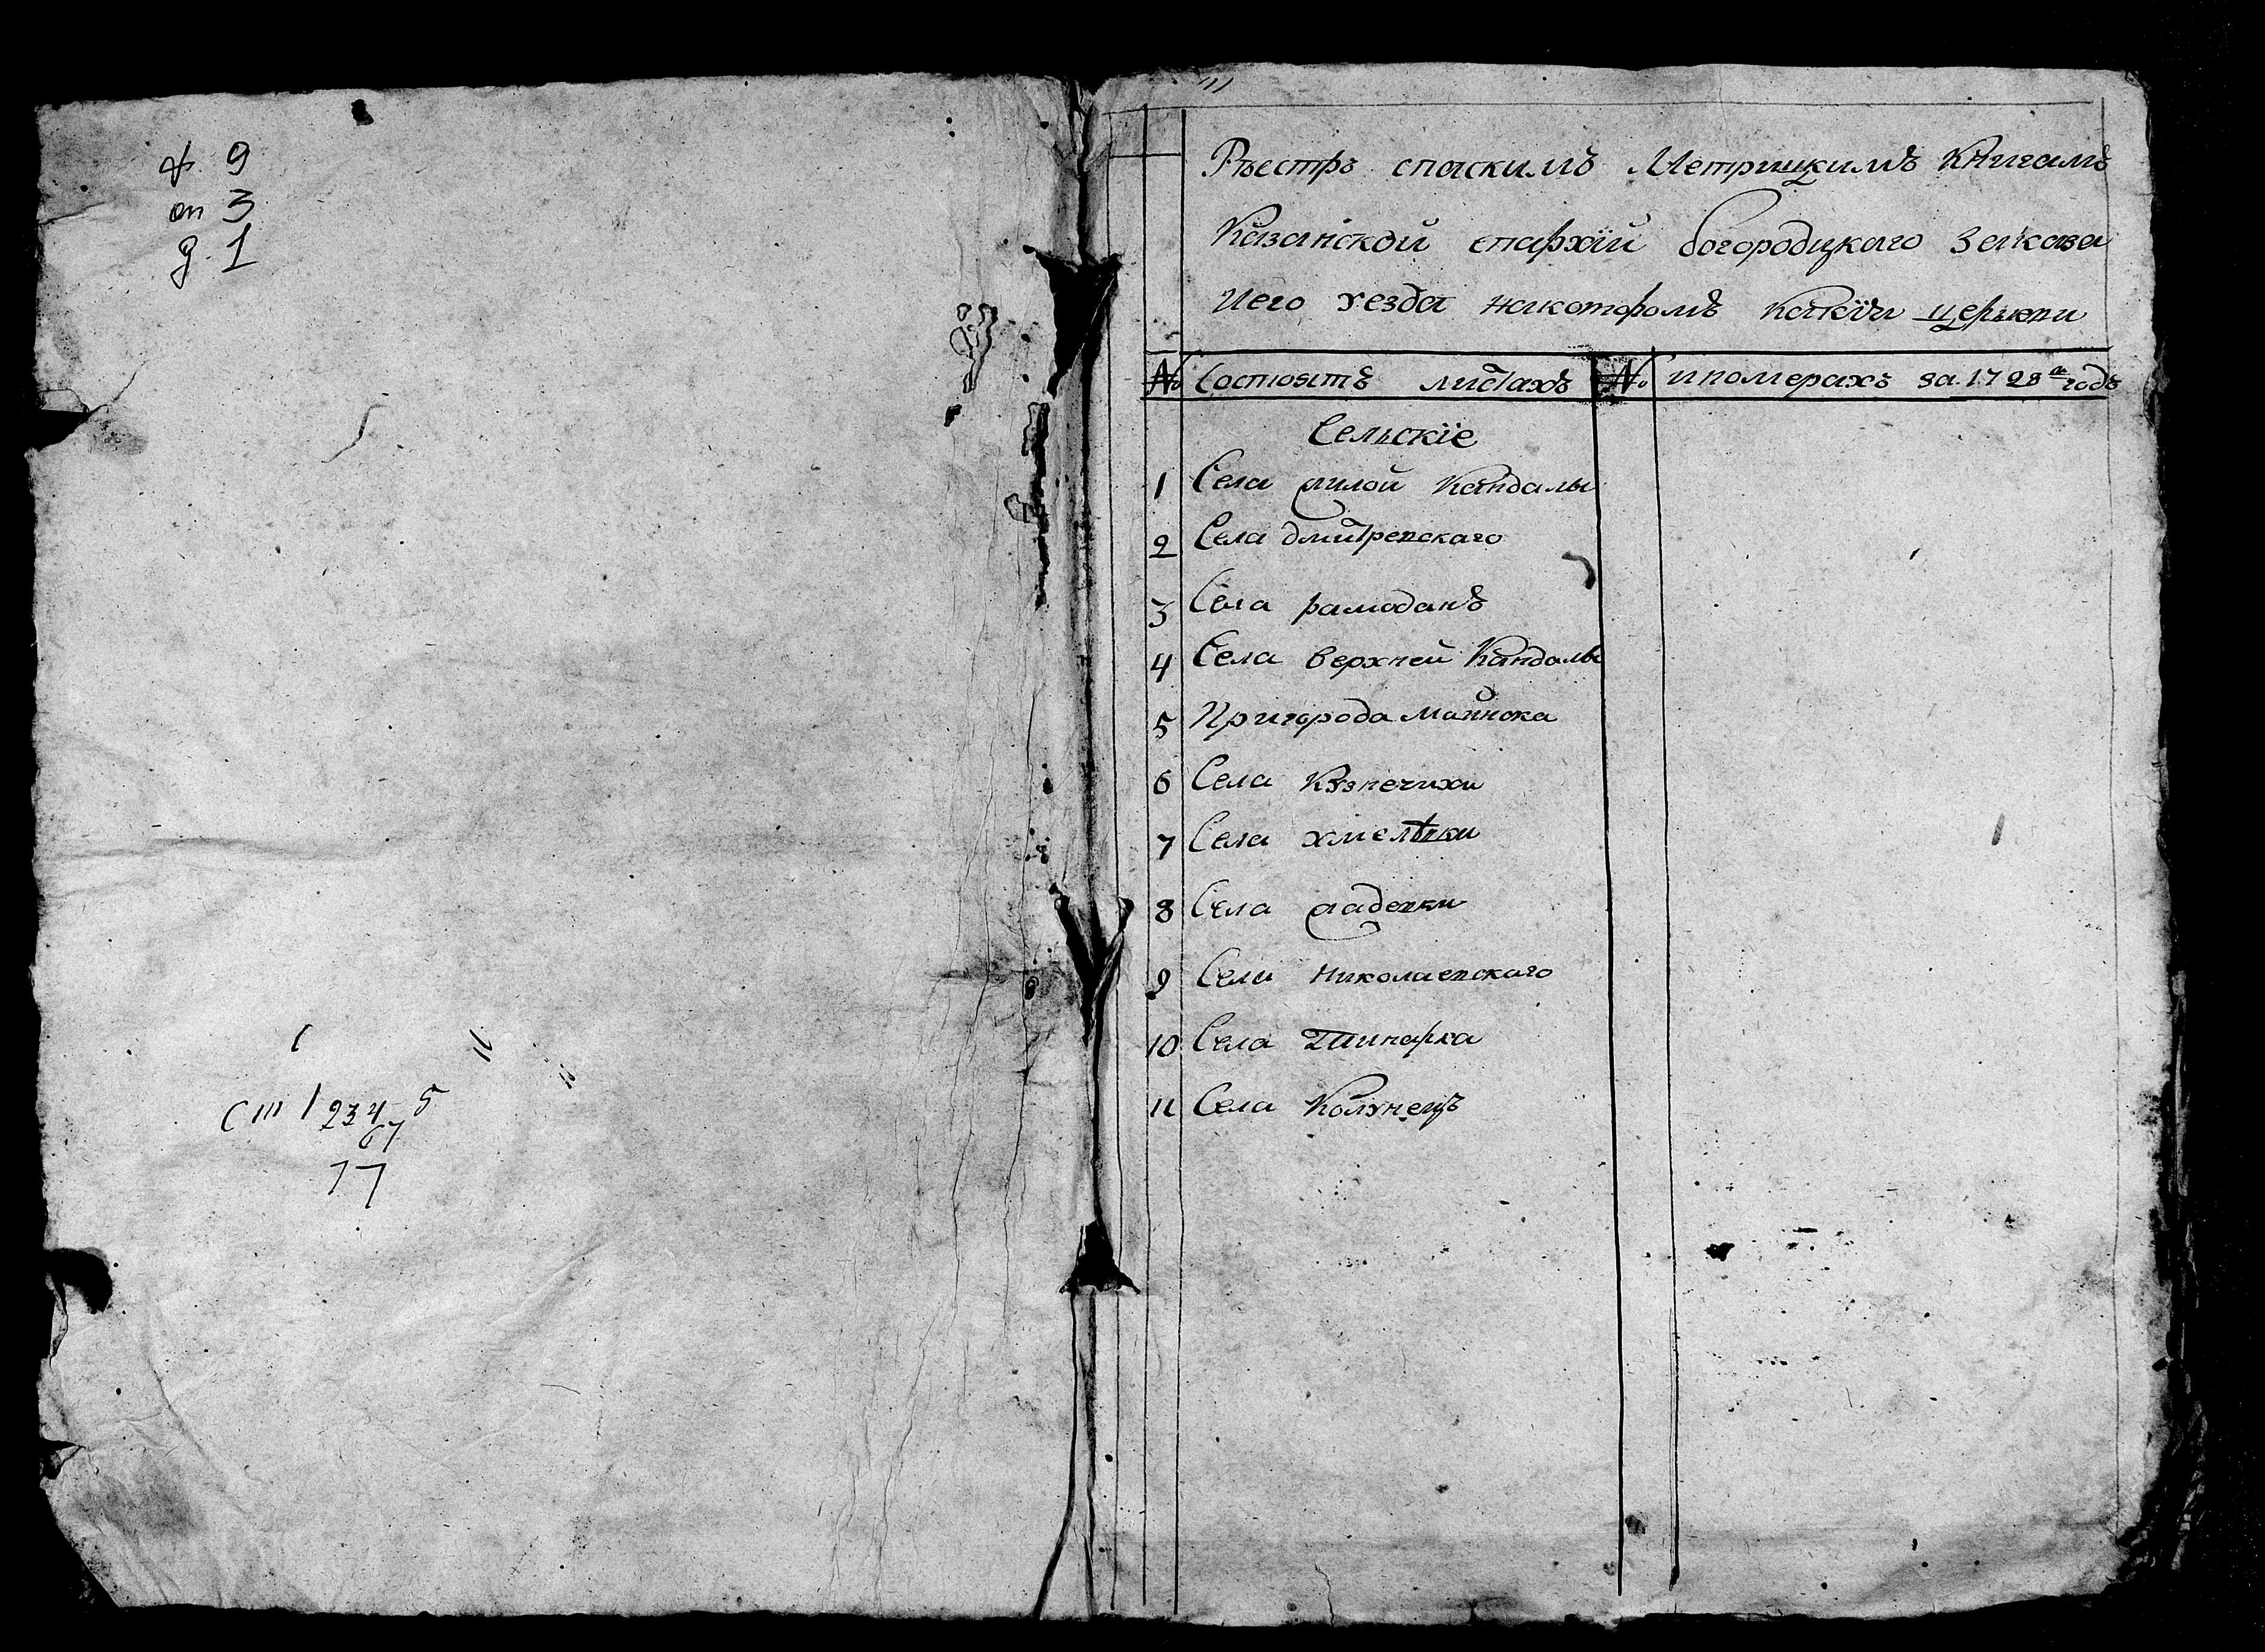 ф. 9
оп 3
д. 1
Ст 1 234 5
67
17
Рѣестръ спаскимъ Метрицкимъ Книгамъ
Казанской епархїи богородицкаго Заказа
Иего уезда накоторомъ какїи церькви
№ Состоятъ листахъ № иномерахъ за 1798й годъ
Сельскїе
1 Села малой Кандалы
2 Села дмитревскаго
3 Села рамоданъ
4 Села верхней Кандалы
5 Пригорода Маинска
6 Села Кузнечихи
7 Села хмелѣвки
8 Села матвевки
9 Села Николаевскаго
10 Села
11 Села Колунецъ